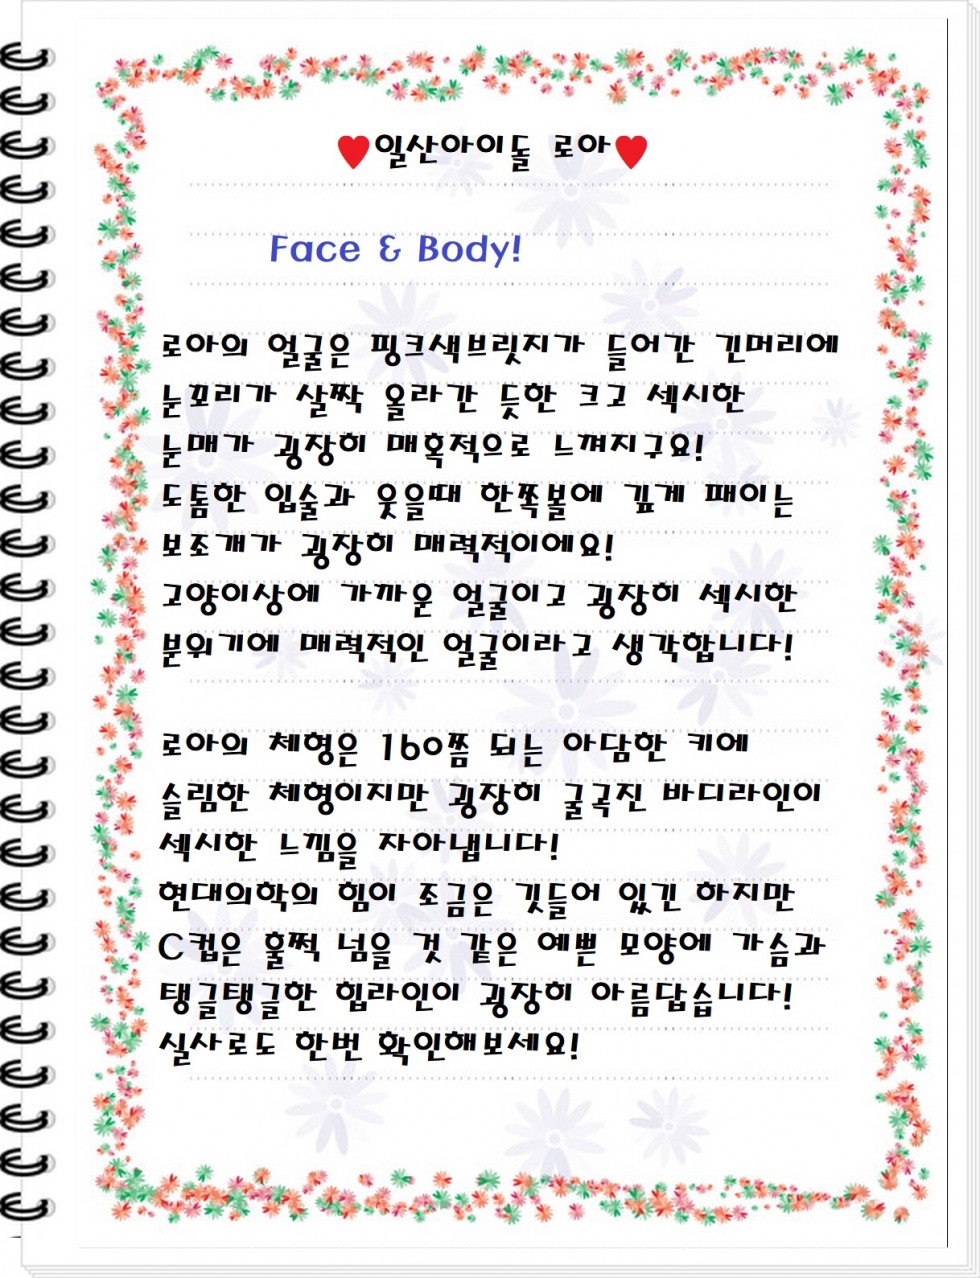 ♥일산아이돌 로아♥
Face & Body!
로아의 얼굴은 핑크색브릿지가 들어간 긴머리에
눈꼬리가 살짝 올라간 듯한 크고 섹시한
눈매가 굉장히 매혹적으로 느껴지구요!
도톰한 입술과 웃을때 한쪽볼에 깊게 패이는
보조개가 굉장히 매력적이에요!
고양이상에 가까운 얼굴이고 굉장히 섹시한
분위기에 매력적인 얼굴이라고 생각합니다!
로아의 체형은 160쯤 되는 아담한 키에
슬림한 체형이지만 굉장히 굴곡진 바디라인이
섹시한 느낌을 자아냅니다!
현대의학의 힘이 조금은 깃들어 있긴 하지만
C컵은 훌쩍 넘을 것 같은 예쁜 모양에 가슴과
탱글탱글한 힙라인이 굉장히 아름답습니다!
실사로도 한번 확인해보세요!